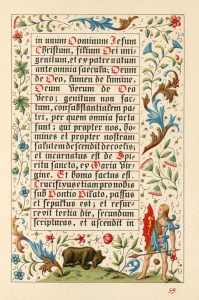 in unum Dominum Jesum
Christum, filium Dei uni
genitum, et ex patre natum
ante omnia saecula; Deum
de Deo, lumen de lumine,
Deum Verum de Deo
Vero; genitum non fac
tum, consubstantialem pa
tri, per quem omnia facta
sunt; qui propter nos, ho
mines et propter nostram
salutem descendit de coelis;
et incarnatus est de Spi
ritu sancto, ex Maria Vir
gine. Et homo factus est.
Crucifixus etiam pro nobis
sub Pontio Pilato, passus
et sepultus est; et resur
rexit tertia die, secundum
scripturas, et ascendit in